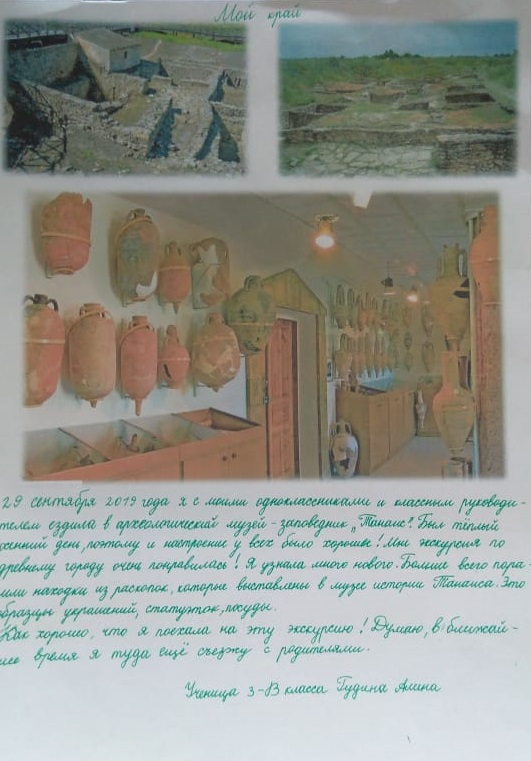 Мой край
29 сентября 2019 года я с моими одноклассниками и классным руководи-
телем ездила в археологический музей-заповедник "Танаис". Был тёплый
осенний день, поэтому и настроение у всех было хорошее! Мне экскурсия по
древнему городу очень понравилась! Я узнала много нового. Больше всего пора-
зили находки из раскопок, которые выставлены в музее истории Танаиса. Это
образцы украшений, статуэток, посуды.
Как хорошо, что я поехала на эту экскурсию! Думаю, в ближай-
шее время я туда ещё съезжу с родителями.
Ученица 3-В класса Гудина Алина